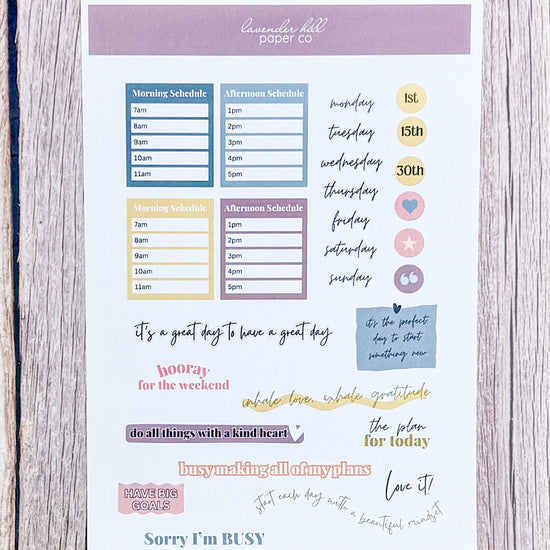 lavender hill
paper co
Morning Schedule
7am
8am
9am
10am
11am
Afternoon Schedule
1pm
2pm
3pm
4pm
5pm
monday
tuesday
wednesday
thursday
friday
saturday
sunday
1st
15th
30th
Morning Schedule
7am
8am
9am
10am
11am
Afternoon Schedule
1pm
2pm
3pm
4pm
5pm
it's a great day to have a great day
it's the perfect
day to start
something new
hooray
for the weekend
inhale love, exhale gratitude
do all things with a kind heart
the plan
for today
busy making all of my plans
HAVE BIG
GOALS
love it!
start each day with a beautiful mindset
Sorry I'm BUSY